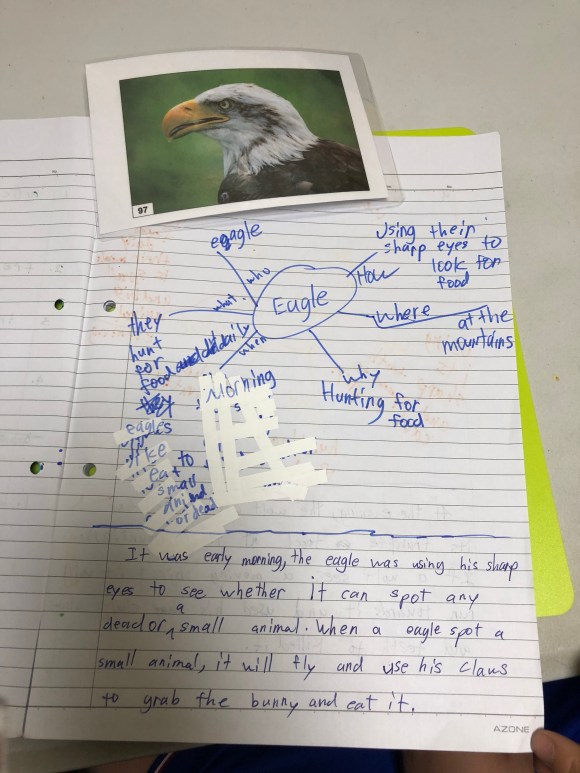 97
eqagle
who
Using their
sharp eyes to
look for
food
How
Eagle
what
where
at the
mountains
they
hunt
for
food daily
when
Morning
why
Hunting for
food
eagles
like
eat to
small
animal
or dead
It was early morning, the eagle was using his sharp
eyes to see whether it can spot any
dead or a small animal. When a eagle spot a
small animal, it will fly and use his claws
to grab the bunny and eat it.
AZONE